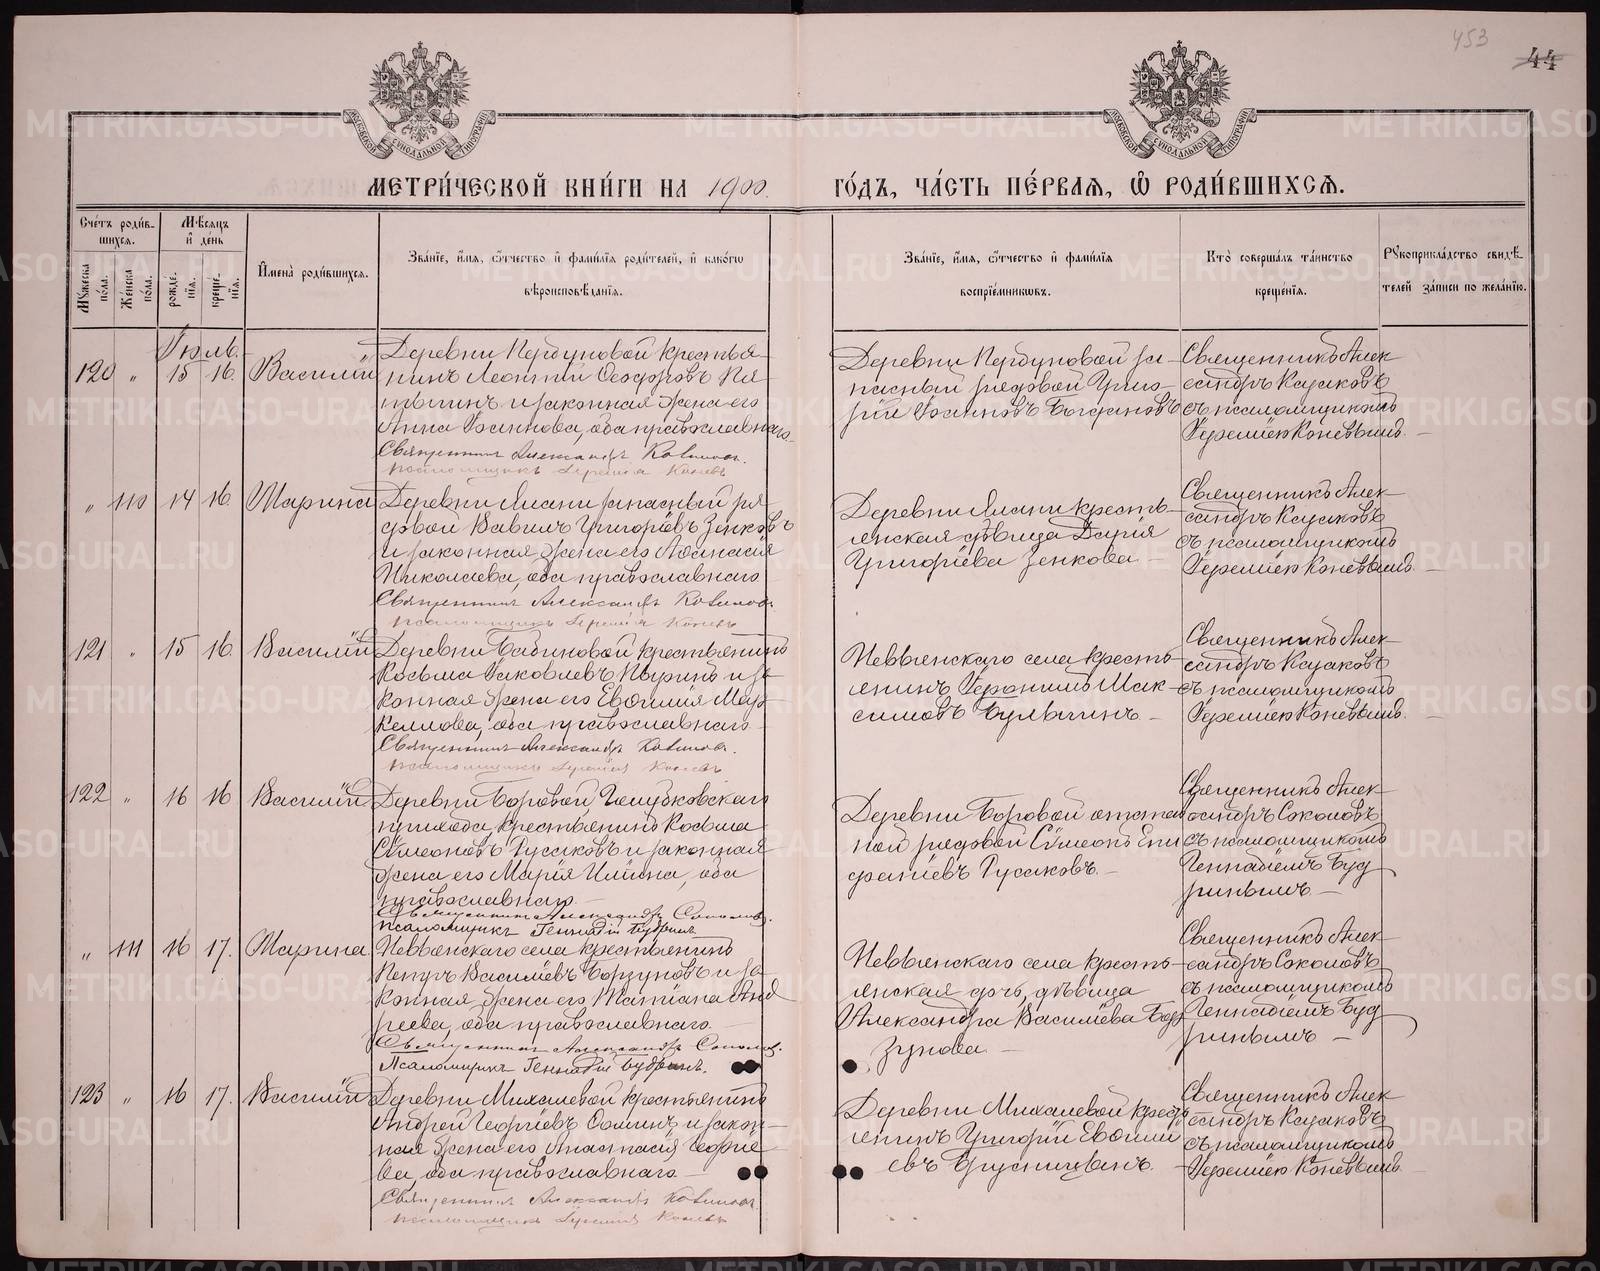 453
44
МЕТРИ́ЧЕСКОЙ КНИ́ГИ НА 1900
ГО́ДЪ, ЧА́СТЬ ПЕ́РВАѦ, Ѿ РОДИ́ВШИХСѦ.
Сче́тъ роди́в-
шихсѧ.
Мѣ́сѧцъ
и҆ де́нь
Мꙋ́жеска по́ла.
Же́нска по́ла.
рожде́-
нїѧ.
креще́-
нїѧ.
И҆мена̀ роди́вшихсѧ.
Зва́нїе, и҆́мѧ, ѻ҆́тчество и҆ фами́лїѧ роди́телей, и҆ како́гѡ
вѣроисповѣ́данїѧ.
Зва́нїе, и҆́мѧ, ѻ҆́тчество и҆ фами́лїѧ
воспрїе́мникѡвъ.
Кто̀ соверша́лъ та́инство
креще́нїѧ.
Рꙋкоприкла́дство свидѣ́-
телей за́писи по жела́нїю.
Іюль.
120 „ 15 16. Василій
Деревни Пердуновой крестья-
нинъ Леонтій Ѳеодоровъ Пя-
тыгинъ и законная жена его
Анна Іоаннова, оба православнаго
Священникъ Александръ Казаковъ.
псаломщикъ Іеремія Коневъ
Деревни Пердуновой за-
пасный рядовой Григо-
рій Іоанновъ Богдановъ
Священникъ Алек-
сандръ Казаковъ
съ псаломщикомъ
Іереміею Коневымъ.
„ 110 14 16. Марина
Деревни Ялани запасный ря-
довой Вавилъ Григоріевъ Зенковъ
и законная жена его Аѳанасія
Николаева, оба православнаго
Священникъ Александръ Казаковъ
псаломщикъ Іеремія Коневъ
Деревни Ялани кресть-
янская дѣвица Дарія
Григоріева Зенкова.
Священникъ Алек-
сандръ Казаковъ
съ псаломщикомъ
Іереміею Коневымъ.
121 „ 15 16. Василій
Деревни Бабиновой крестьянинъ
Косьма Іаковлевъ и за-
конная жена его Евѳимія Мар-
келлова, оба православнаго
Священникъ Александръ Казаковъ.
псаломщикъ Іеремія Коневъ
Невьянскаго села кресть-
янинъ Іеронимъ Мак-
симовъ Булыгинъ.
Священникъ Алек-
сандръ Казаковъ
съ псаломщикомъ
Іереміею Коневымъ.
122 „ 16 16 Василій
Деревни Боровой Голубковскаго
прихода, крестьянинъ Косьма
Сѵмеоновъ Русаковъ и законная
жена его Марія Ильина, оба
православнаго.
Священникъ Александръ Соколовъ.
Псаломщикъ Геннадій Будринъ
Деревни Боровой отстав-
ной рядовой Сѵмеонъ Епи-
фаніевъ Русаковъ.
Священникъ Алек-
сандръ Соколовъ
съ псаломщикомъ
Геннадіемъ Буд-
ринымъ.
„ 111 16 17. Марина
Невьянскаго села крестьянинъ
Петръ Василіевъ Борзуновъ и за-
конная жена его Татіана Анд-
реева, оба православнаго.
Священникъ Александръ Соколовъ.
Псаломщикъ Геннадій Будринъ.
Невьянскаго села кресть-
янская дочь, дѣвица
Александра Василіева Бор-
зунова.
Священникъ Алек-
сандръ Соколовъ
съ псаломщикомъ
Геннадіемъ Буд-
ринымъ
123 „ 16 17. Василій
Деревни Михалевой крестьянинъ
Андрей Георгіевъ Соминъ и закон-
ная жена его Анастасія Георгіе-
ва, оба православнаго.
Священникъ Александръ Казаковъ
псаломщикъ Іеремія Коневъ
Деревни Михалевой кресть-
янинъ Григорій Евѳимі-
евъ Брусницынъ.
Священникъ Алек-
сандръ Казаковъ
съ псаломщикомъ
Іереміею Коневымъ.
METRIKI.GASO-URAL.RU